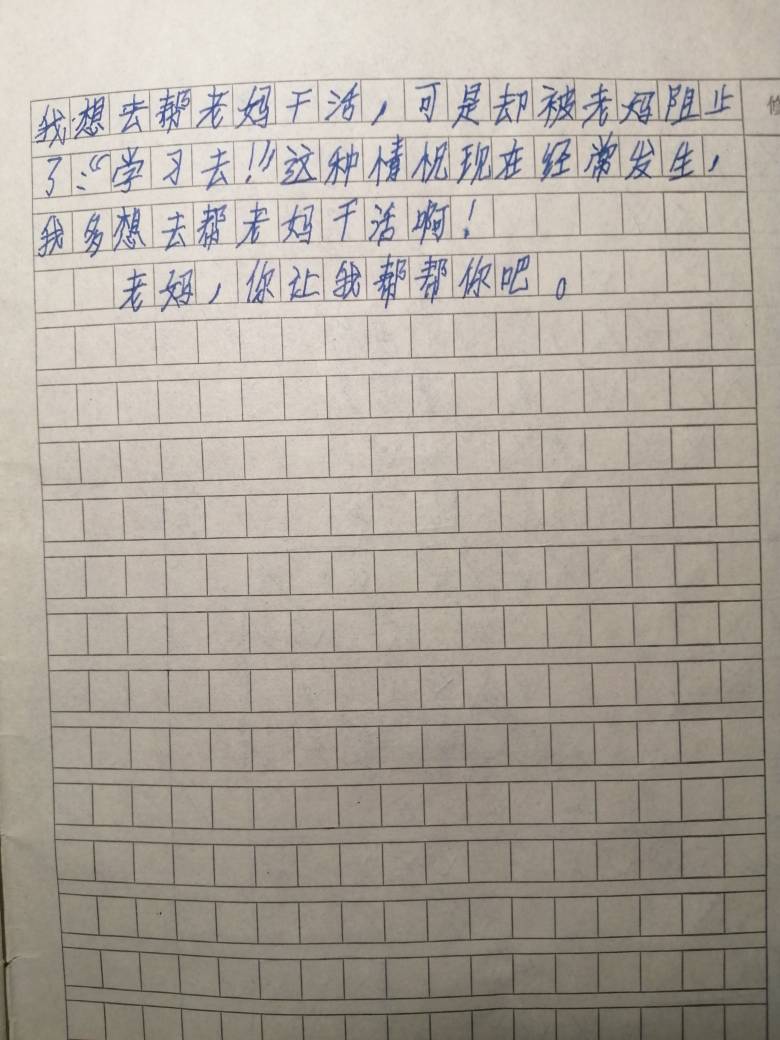 我想去帮老妈干活，可是却被老妈阻止
了：“学习去！”这种情况现在经常发生，
我多想去帮老妈干活啊！
老妈，你让我帮帮你吧。